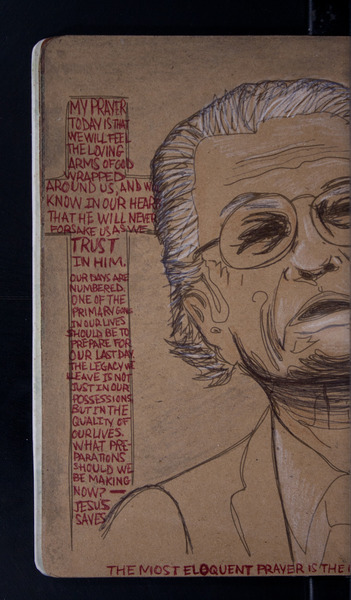 MY PRAYER
TODAY IS THAT
WE WILL FEEL
THE LOVING
ARMS OF GOD
WRAPPED
AROUND US, AND W
KNOW IN OUR HEAR
THAT HE WILL NEVER
FORSAKE US AS WE
TRUST
IN HIM.
OUR DAYS ARE
NUMBERED.
ONE OF THE
PRIMARY GOALS
IN OUR LIVES
SHOULD BE TO
PREPARE FOR
OUR LAST DAY.
THE LEGACY WE
LEAVE IS NOT
JUST IN OUR
POSSESSIONS,
BUT IN THE
QUALITY OF
OUR LIVES.
WHAT PRE-
PARATIONS
SHOULD WE
BE MAKING
NOW? —
JESUS
SAVES
THE MOST ELOQUENT PRAYER IS THE